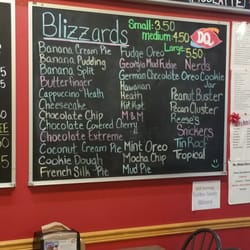 Blizzards
Small: 3.50
medium: 4.50
Large: 5.50
DQ
Banana Cream Pie
Banana Pudding
Banana Split
Butterfinger
Cappuccino Heath
Cheesecake
Chocolate Chip
Chocolate Covered Cherry
Chocolate Extreme
Coconut Cream Pie
Cookie Dough
French Silk Pie
Fudge Oreo
Georgia Mud Fudge
German Chocolate
Hawaiian
Heath
Kit Kat
M&M
Mint Oreo
Mocha Chip
Mud Pie
Nerds
Oreo Cookie
Jar
Peanut Buster
Pecan Cluster
Reese's
Snickers
Tin Roof
Tropical